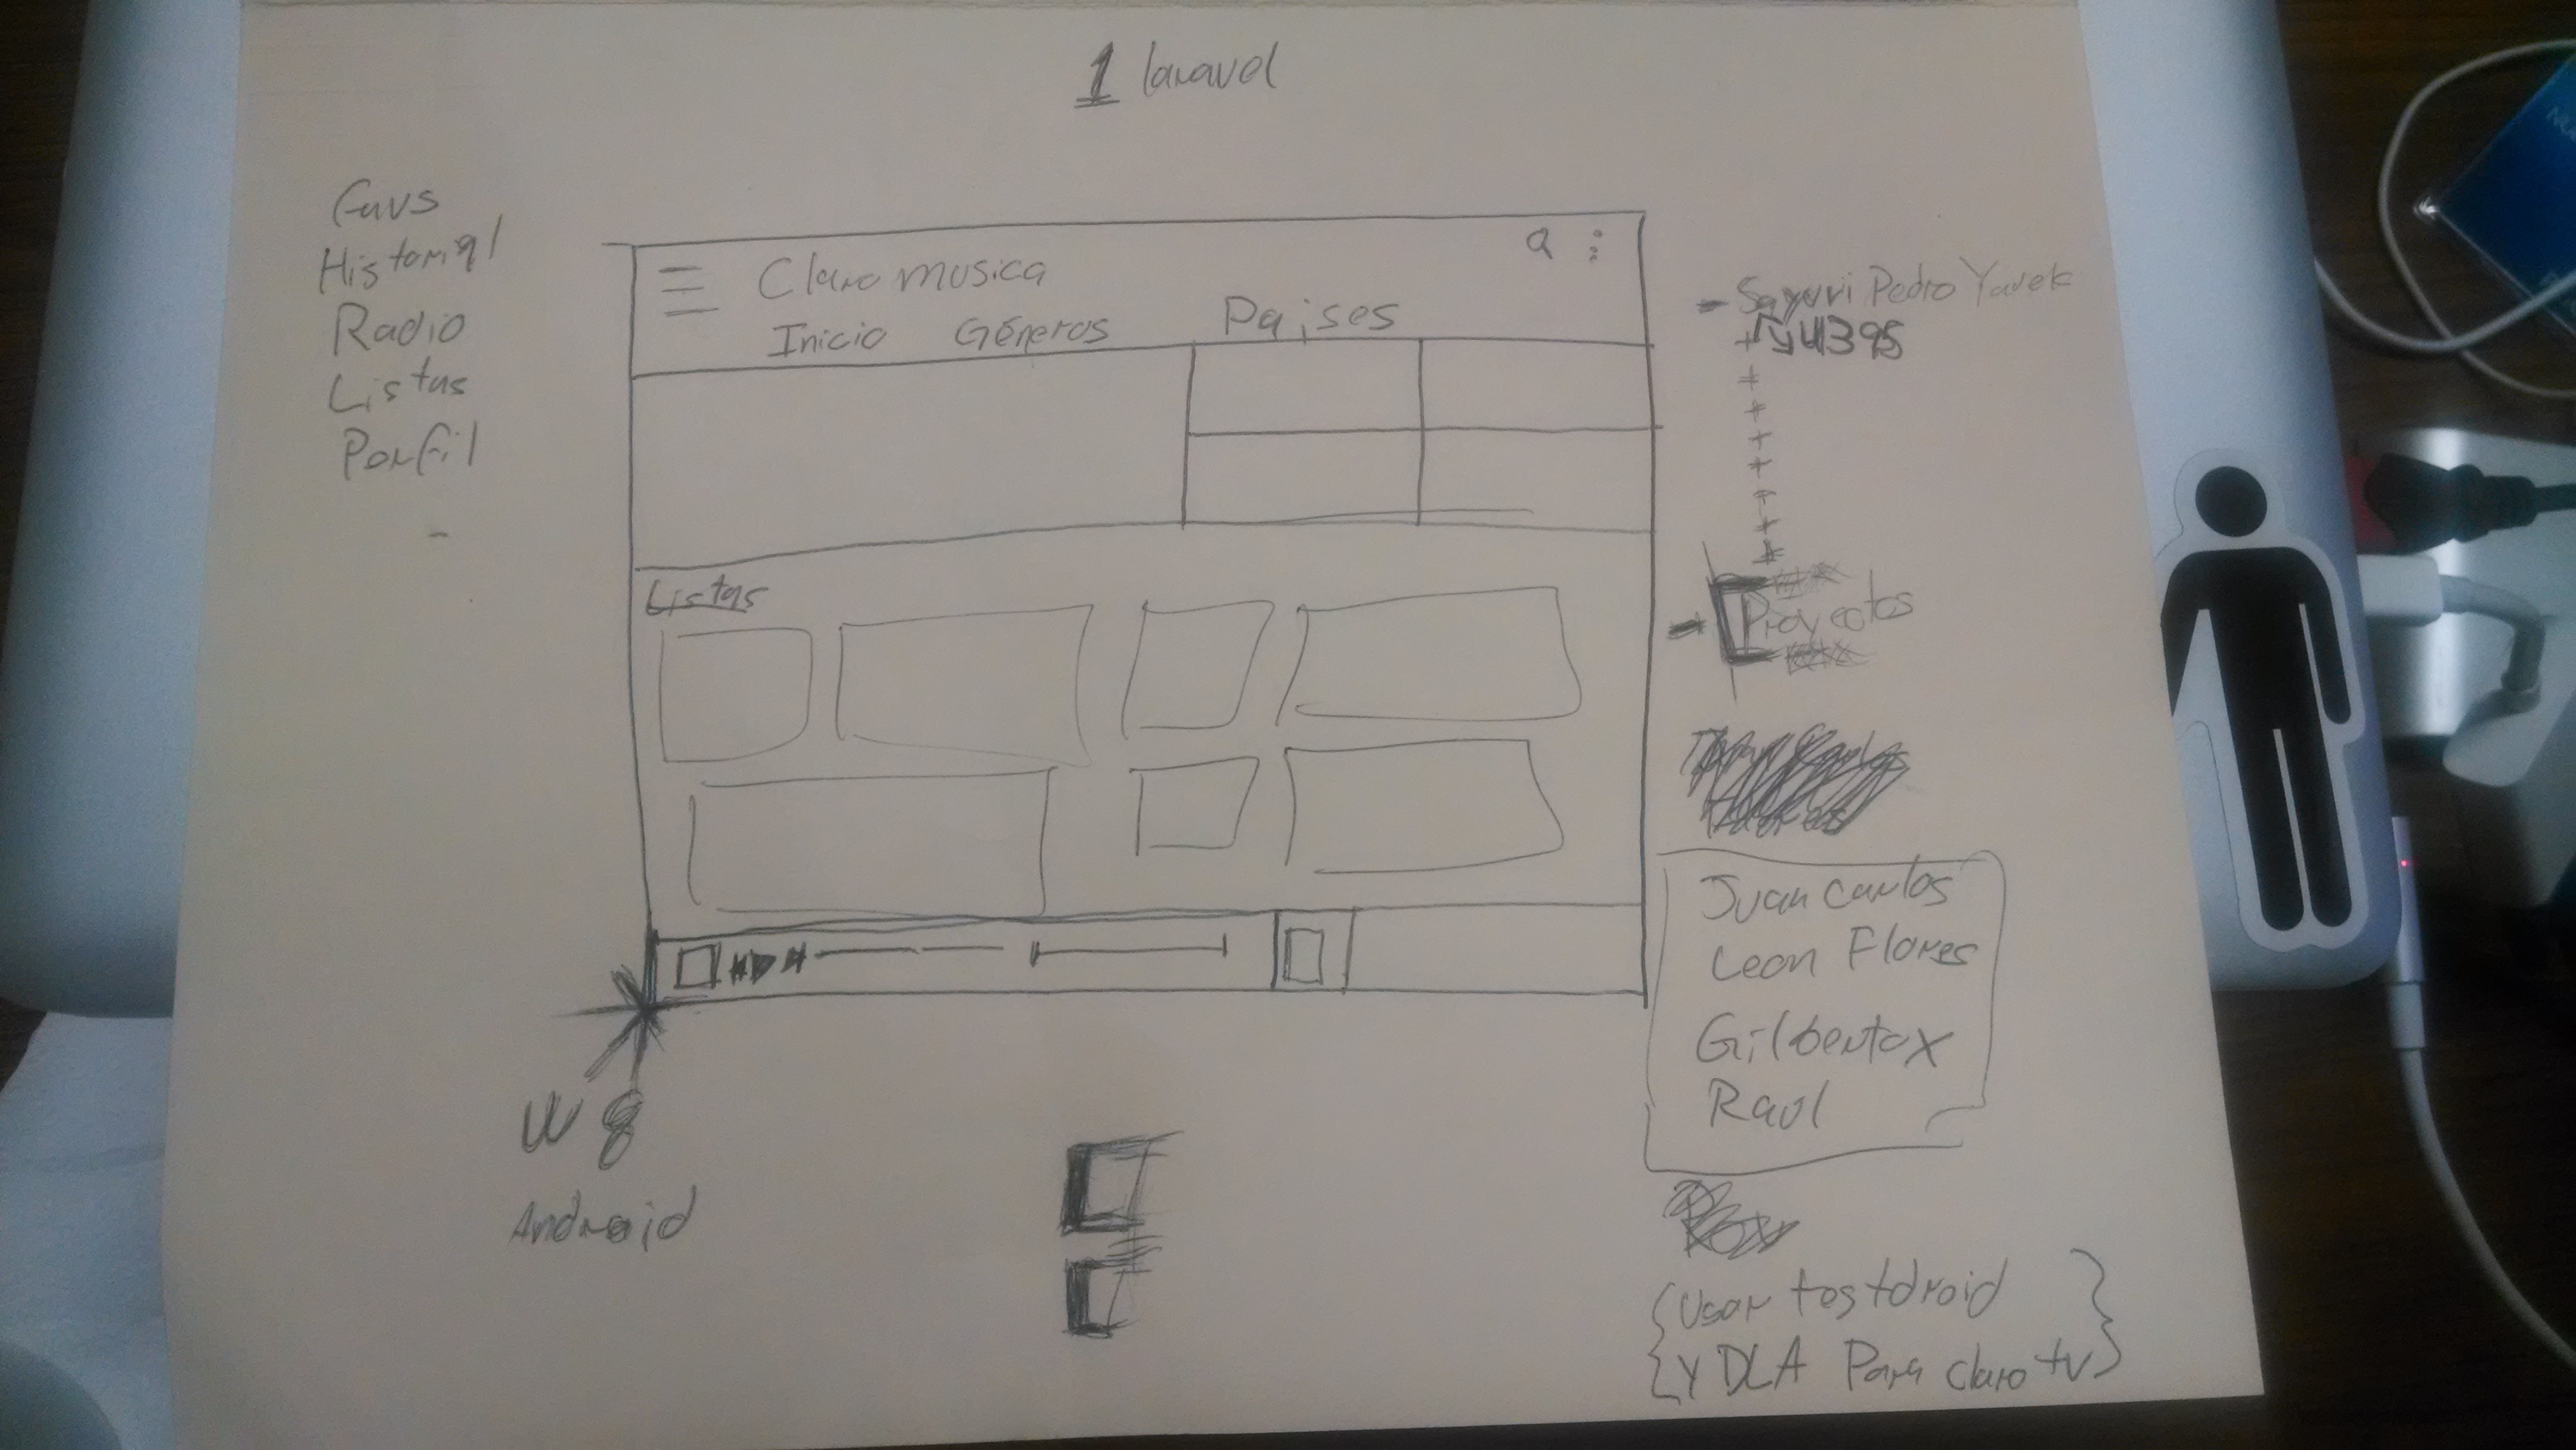 1 laravel
Favs
Historial
Radio
Listas
Perfil
Claro musica
Inicio Géneros Paises
Listas
W 8
Android
Sayuri Pedro Yarek
Proyectos
Juan Carlos
Leon Flores
Gilbertox
Raul
{Usar testdroid}
{Y DLA Para claro tv}